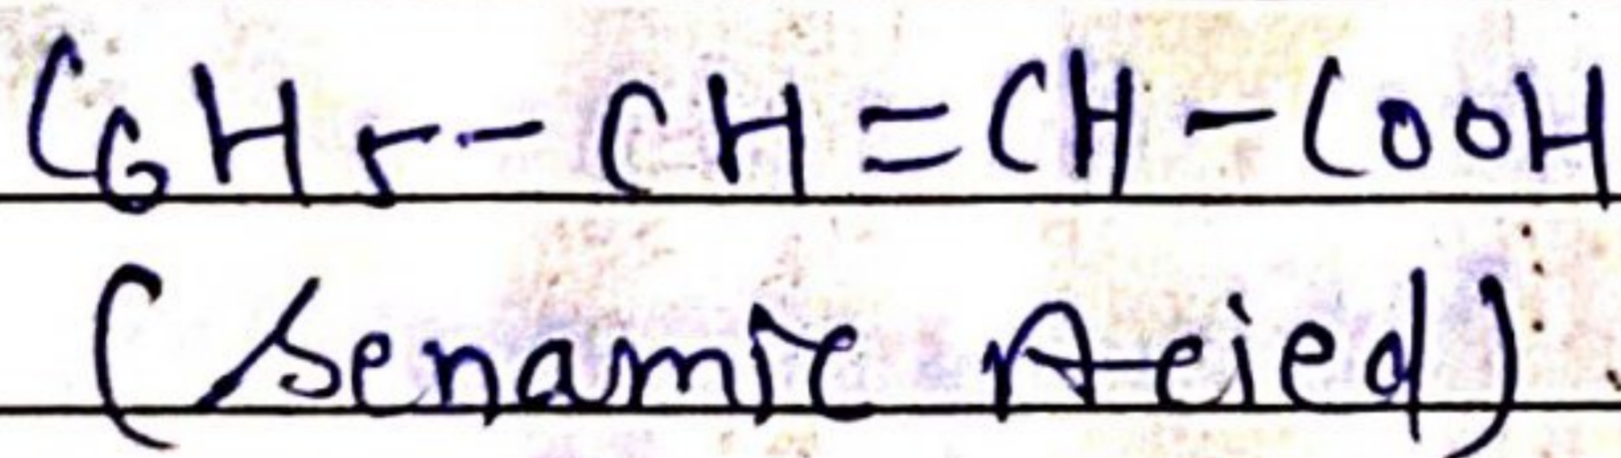 C6H5-CH=CH-COOH
(Senamic Acied)